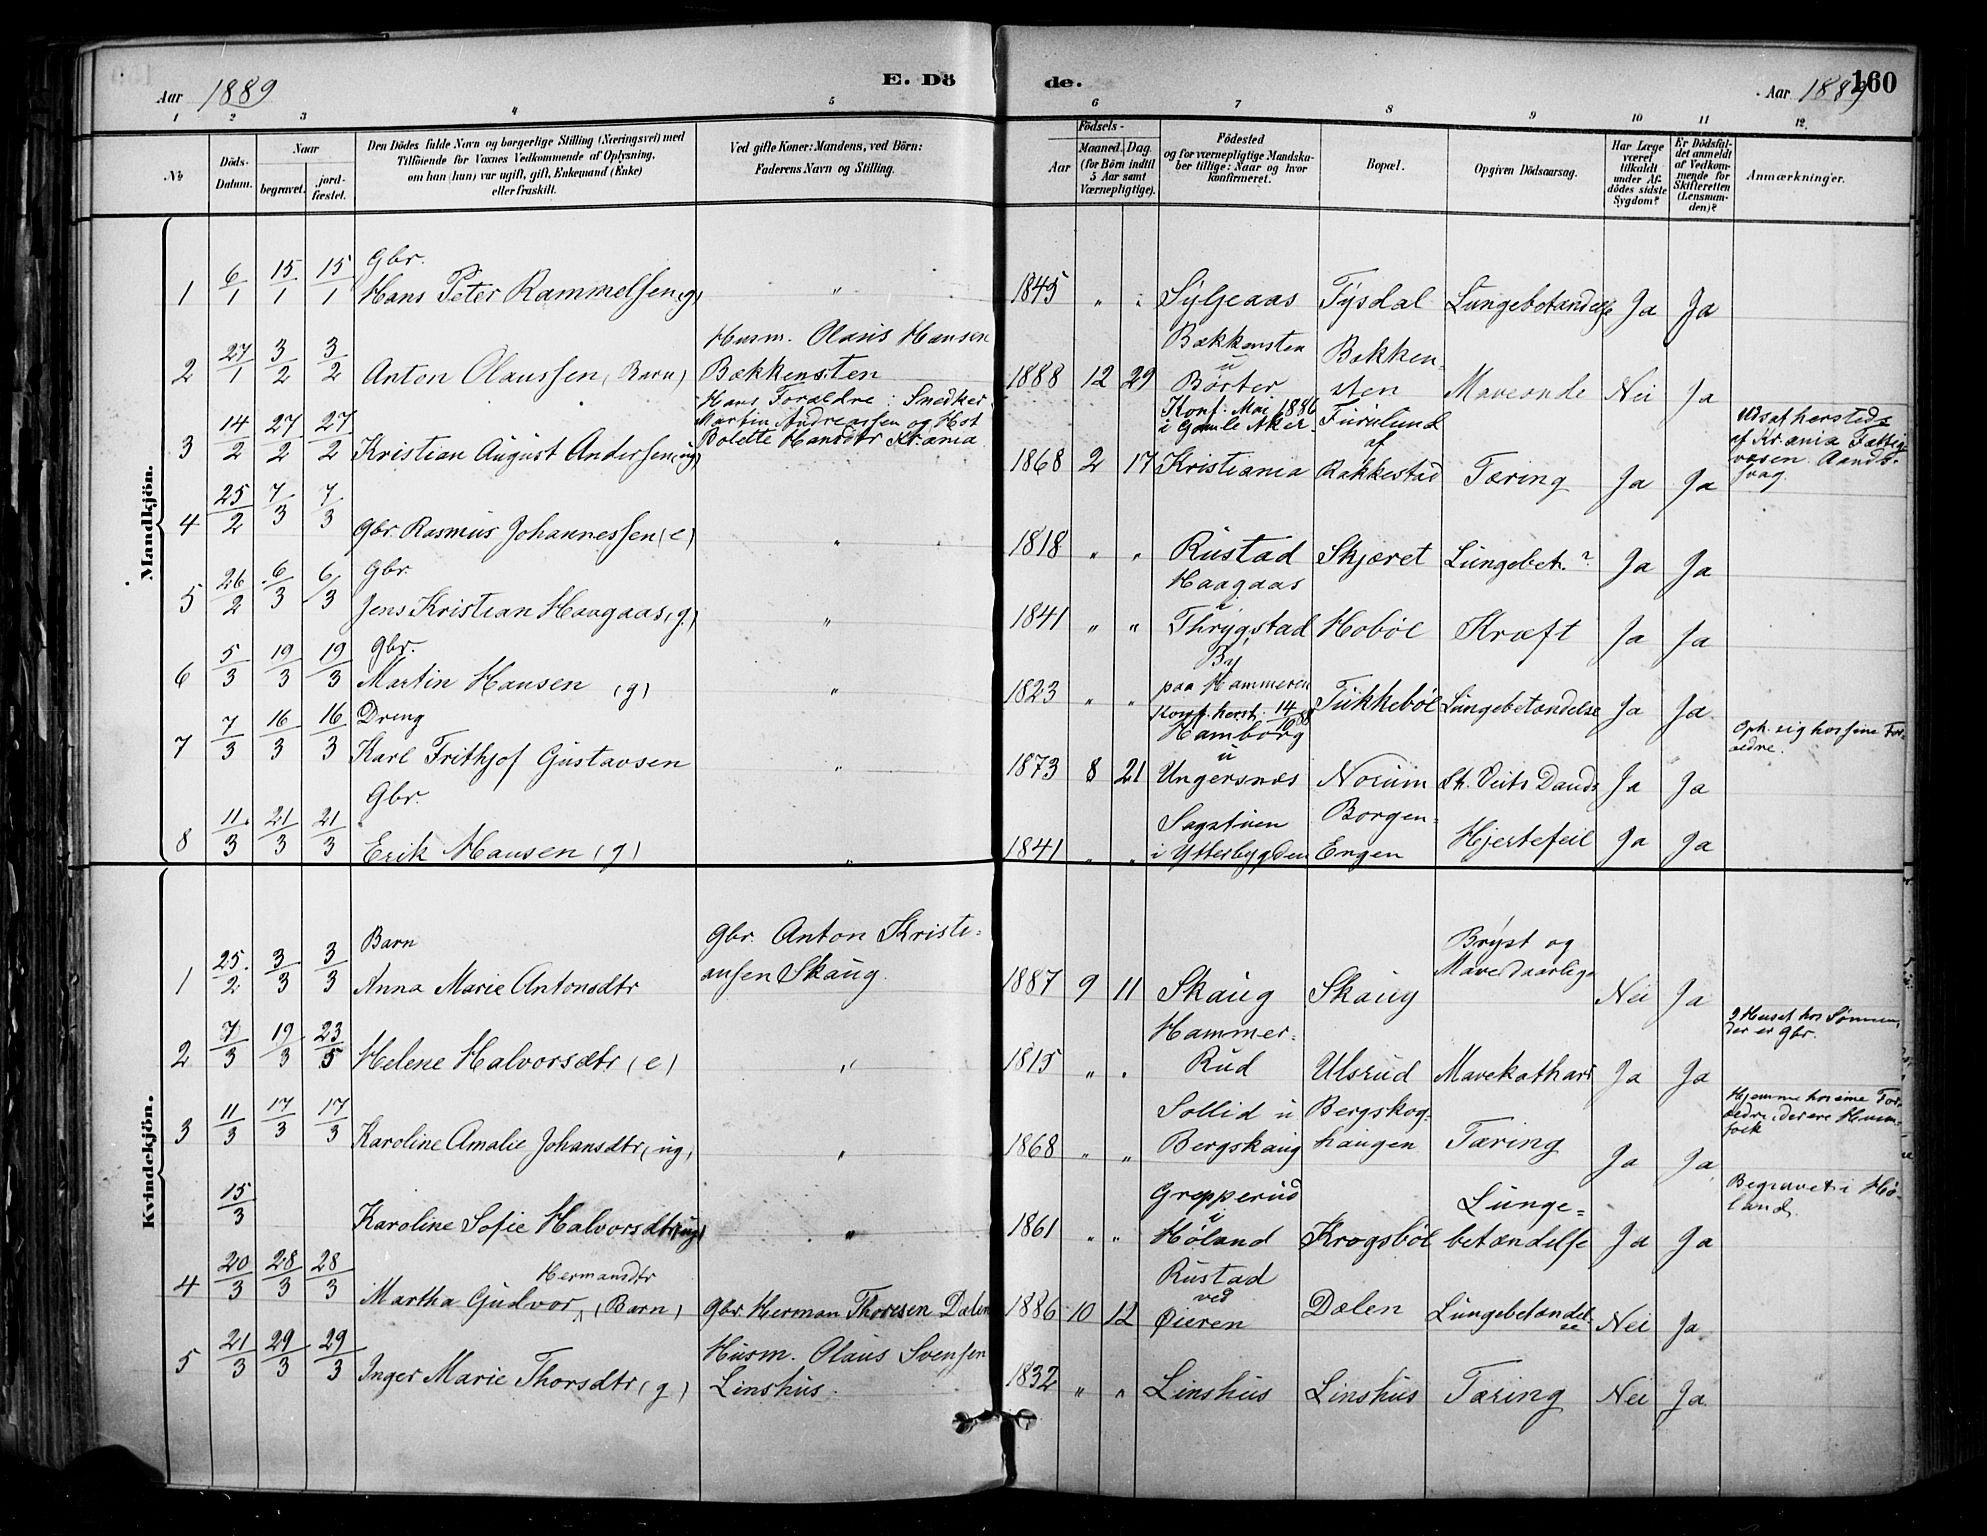 Aar 1889 E. Dö de. Aar 1889 160
1 2 3 4 5 6 7 8 9 10 11 12.
No
Döds-Datum.
Naar
begravet.
jord-fæstet.
Den Dödes fulde Navn og borgerlige Stilling (Næringsvei) med
Tilföiende for Voxnes Vedkommende af Oplysning,
om han (hun) var ugift, gift, Enkemand (Enke)
eller fraskilt.
Ved gifte Koner: Mandens, ved Börn:
Faderens Navn og Stilling.
Födsels-
Aar
Maaned.
Dag.
(for Börn indtil
5 Aar samt
Værnepligtige).
Födested
og for værnepligtige Mandska-
ber tillige: Naar og hvor
konfirmeret.
Bopæl.
Opgiven Dödsaarsag.
Har Læge
været
tilkaldt
under Af-
dödes sidste
Sygdom?
Er Dödsfal-
det anmeldt
af Vedkom-
mende for
Skifteretten
(Lensman-
den)?
Anmærkninger.
Mandkjön.
1 6/1 15/1 15/1 Gbr.
Hans Peter Rammelsen (g) " 1845 " " Sýljeaas Týsdal Lungebetændelse Ja Ja
2 27/1 3/2 3/2 Anton Olaussen (Barn) Husm. Olaus Hansen
Bækkensten 1888 12 29 Bækkensten
u
Børter Bakken-
sten Maveonde Nei Ja
3 14/2 27/2 27/2 Kristian August Andersen (ug) Hans Forældre: Snedker
Martin Andreassen og Hst
Bolette Hansdtr Kr.ania 1868 2 17 Konf. Mai 1886
i Gamle Aker
Kristiania Furulund
af
Rakkestad Tæring Ja Ja Udsat hersteds
af Kr.ania Fattig
væsen. Aands-
svag.
4 25/2 7/3 7/3 Gbr. Rasmus Johannessen (e) " 1818 " " Rustad Skjæret Lungebet.? Ja Ja
5 26/2 6/3 6/3 Gbr.
Jens Kristian Haagaas (g) " 1841 " " Haagaas
u
Thrygstad Hobøl Kræft Ja Ja
6 5/3 19/3 19/3 Gbr.
Martin Hansen (g) " 1823 " " By
paa Hammeren Tukkebøl Lungebetændelse Ja Ja
7 7/3 16/3 16/3 Dreng
Karl Frithjof Gustavsen " 1873 8 21 Konf. herst. 14/10 88
Hamborg
u
Ungersnæs Norum St. Veits Dands Ja Ja Oph. sig hos sine For-
ældre.
8 11/3 21/3 21/3 Gbr.
Erik Hansen (g) " 1841 " " Sagstuen
i Ytterbygden Borgen-
Engen Hjertefeil Ja Ja
Kvindekjön.
1 25/2 3/3 3/3 Barn
Anna Marie Antonsdtr Gbr. Anton Kristi-
ansen Skaug. 1887 9 11 Skaug Skaug Bryst og
Mavedaarlig Nei Ja
2 7/3 19/3 23/5 Helene Halvorsdtr (e) " 1815 " " Hammer-
Rud Ulsrud Mavekathar Ja Ja I Huset hos Sønnen,
der er Gbr.
3 11/3 17/3 17/3 Karoline Amalie Johansdtr (ug) " 1868 " " Sollid u
Bergskaug Bergskog-
haugen Tæring Ja Ja Hjemme hos sine For-
ældre, der ere Husm-
folk
15/3 Karoline Sofie Halvorsdtr (ug) " 1861 " " Grepperud
i
Høland Krogsbøl Lunge-
betændelse Ja Ja Begravet i Hø-
land.
4 20/3 28/3 28/3 Martha Gudvor Hermansdtr (Barn) Gbr. Herman Thoresen Dalen 1886 10 12 Rustad
ved
Øieren Dalen Lungebetændel-
se Nei Ja
5 21/3 29/3 29/3 Inger Marie Thorsdtr (g) Husm. Olaus Svensen
Linshus. 1832 " " Linshus Linshus Tæring Nei Ja